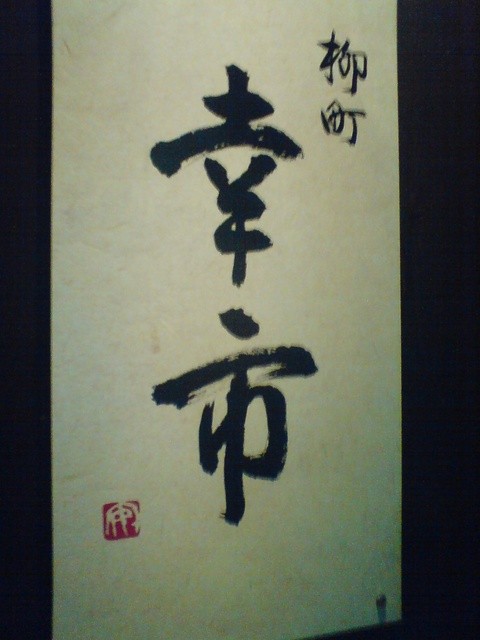 柳町
幸市